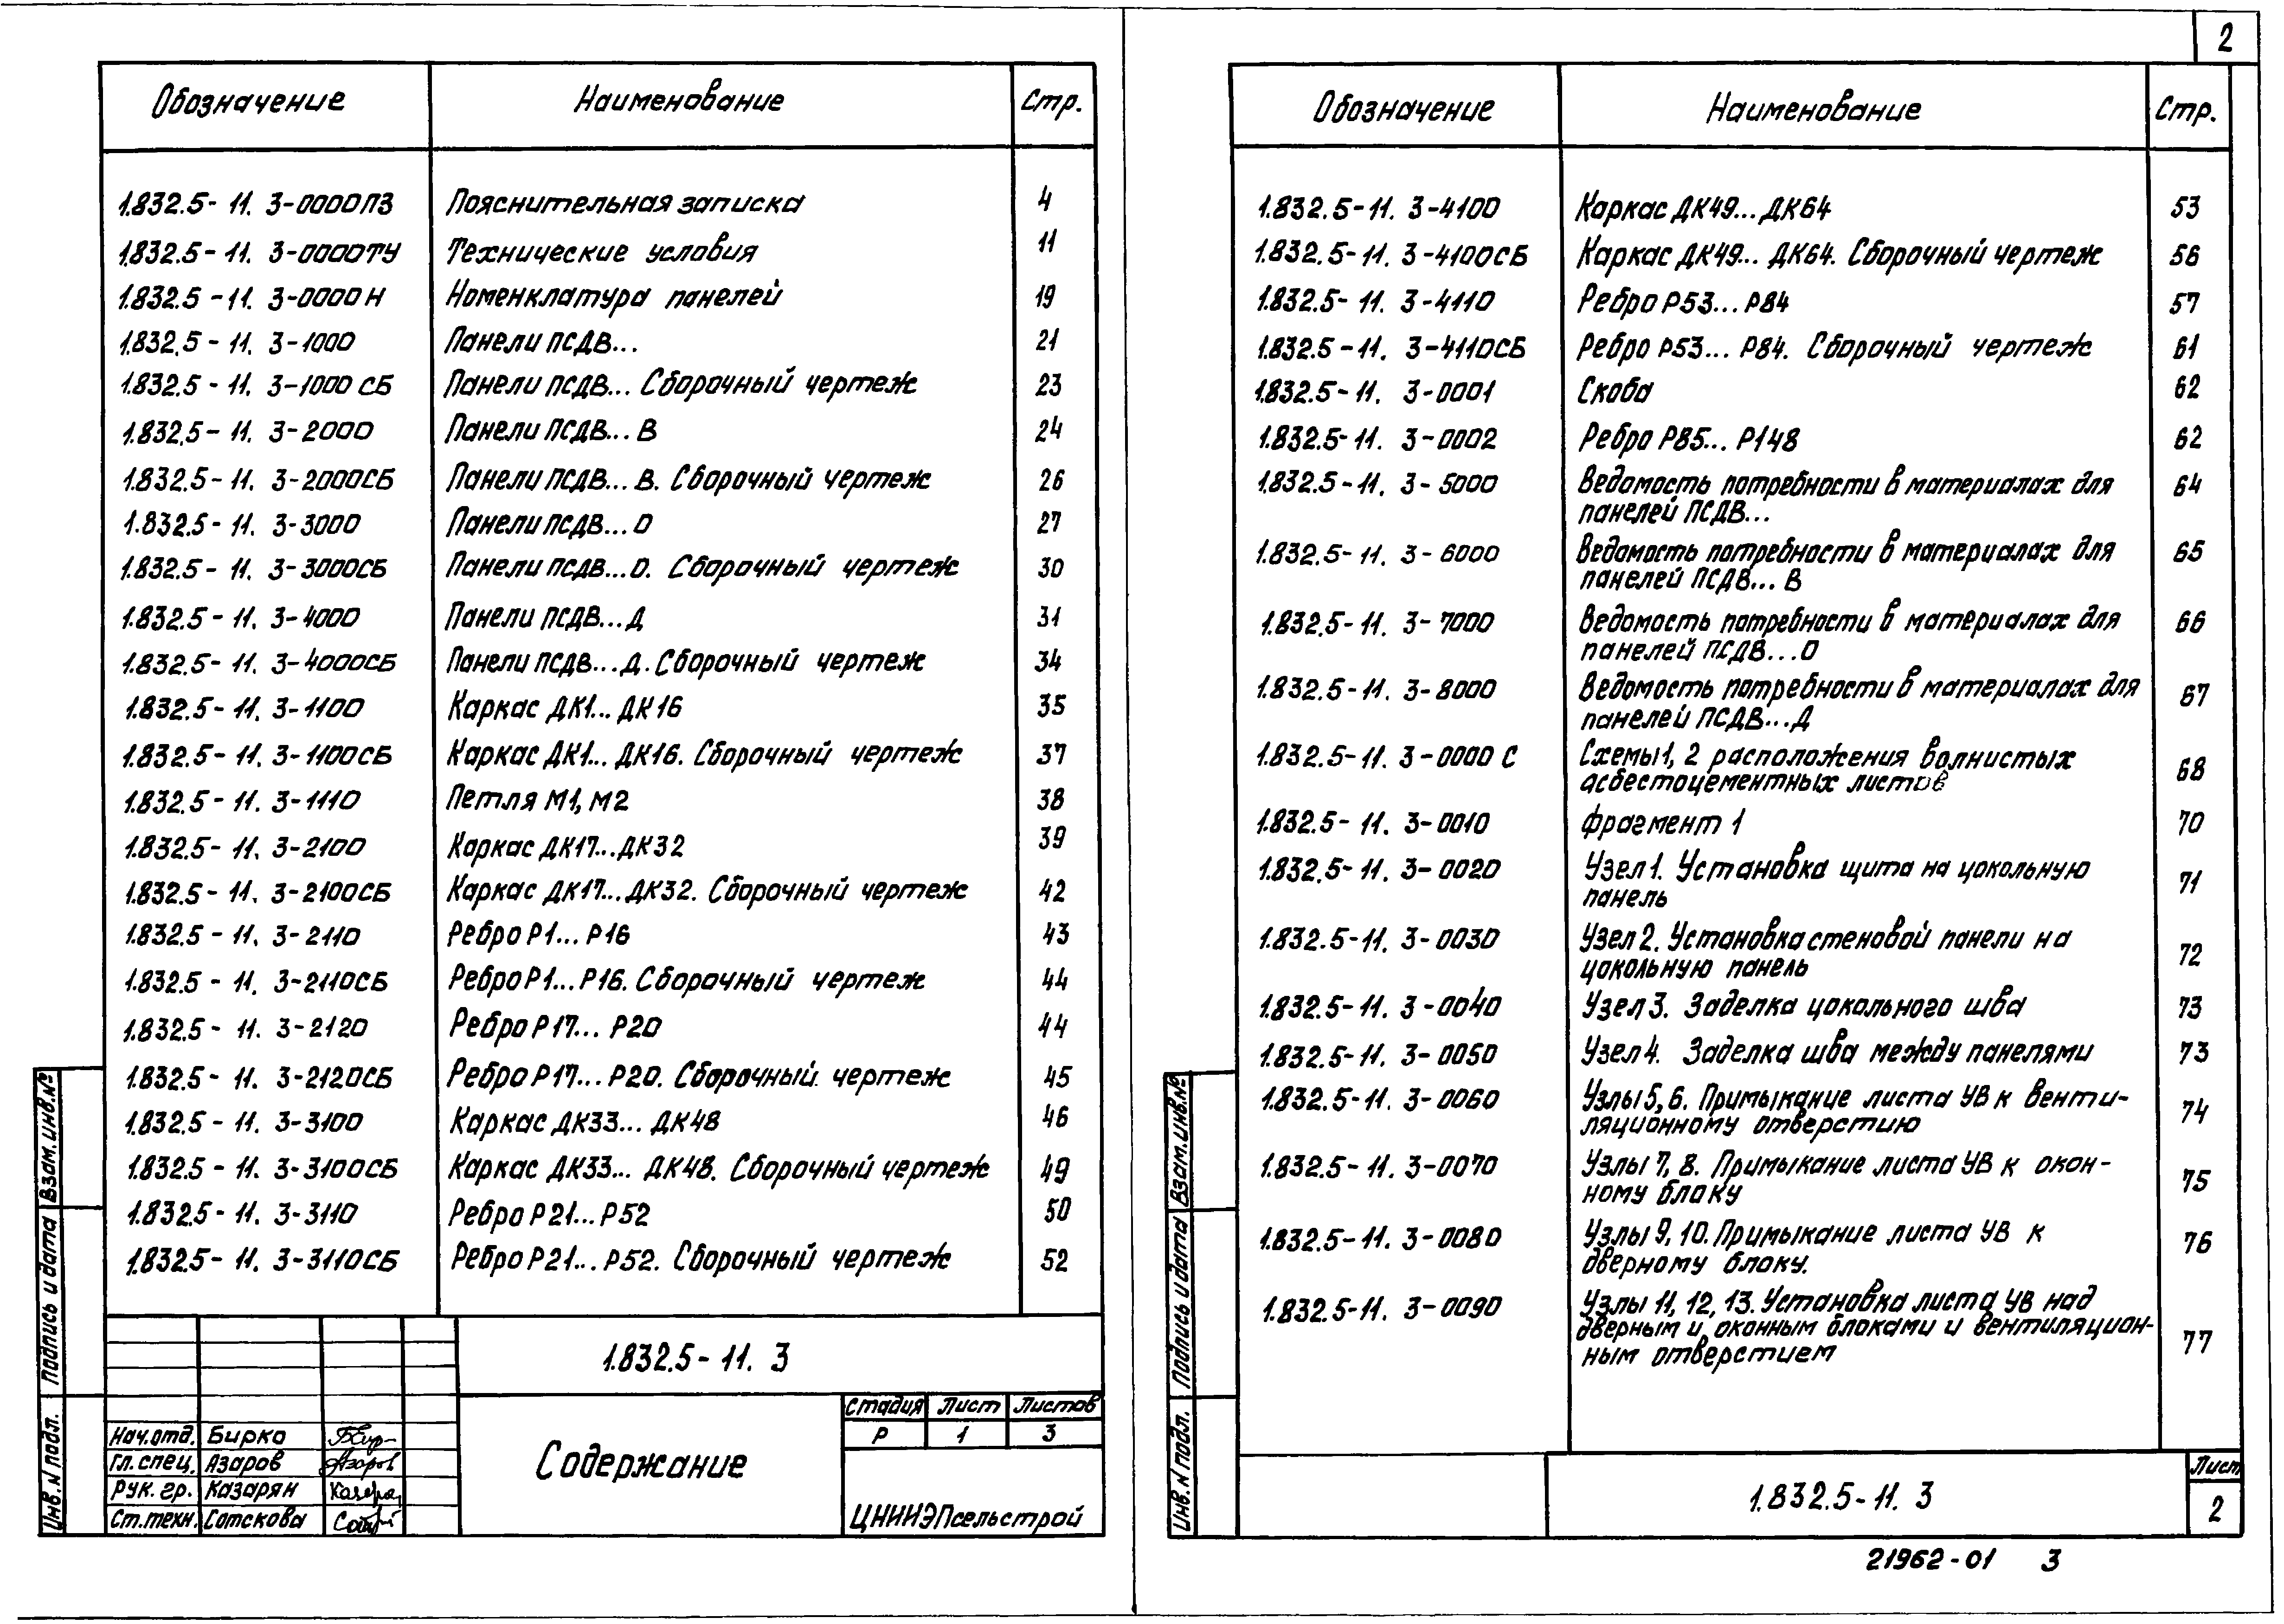 2
Обозначение Наименование Стр.
1.832.5-11. 3-0000ПЗ Пояснительная записка 4
1.832.5-11. 3-0000ТУ Технические условия 11
1.832.5-11. 3-0000Н Номенклатура панелей 19
1.832.5-11. 3-1000 Панели ПСДВ... 21
1.832.5-11. 3-1000СБ Панели ПСДВ... Сборочный чертеж 23
1.832.5-11. 3-2000 Панели ПСДВ...В 24
1.832.5-11. 3-2000СБ Панели ПСДВ...В. Сборочный чертеж 26
1.832.5-11. 3-3000 Панели ПСДВ...О 27
1.832.5-11. 3-3000СБ Панели ПСДВ...О. Сборочный чертеж 30
1.832.5-11. 3-4000 Панели ПСДВ...Д 31
1.832.5-11. 3-4000СБ Панели ПСДВ...Д. Сборочный чертеж 34
1.832.5-11. 3-1100 Каркас ДК1...ДК16 35
1.832.5-11. 3-1100СБ Каркас ДК1...ДК16. Сборочный чертеж 37
1.832.5-11. 3-1110 Петля М1, М2 38
1.832.5-11. 3-2100 Каркас ДК17...ДК32 39
1.832.5-11. 3-2100СБ Каркас ДК17...ДК32. Сборочный чертеж 42
1.832.5-11. 3-2110 Ребро Р1...Р16 43
1.832.5-11. 3-2110СБ Ребро Р1...Р16. Сборочный чертеж 44
1.832.5-11. 3-2120 Ребро Р17...Р20 44
1.832.5-11. 3-2120СБ Ребро Р17...Р20. Сборочный чертеж 45
1.832.5-11. 3-3100 Каркас ДК33...ДК48 46
1.832.5-11. 3-3100СБ Каркас ДК33...ДК48. Сборочный чертеж 49
1.832.5-11. 3-3110 Ребро Р21...Р52 50
1.832.5-11. 3-3110СБ Ребро Р21...Р52. Сборочный чертеж 52
1.832.5-11. 3
Стадия Лист Листов
Р 1 3
Содержание
Нач.отд. Бирко
Гл.спец. Азаров Азаров
Рук.гр. Казарян
Ст.техн. Сотскова
ЦНИИЭПсельстрой
Инв.N подл. Подпись и дата Взам.инв.№
Обозначение Наименование Стр.
1.832.5-11. 3-4100 Каркас ДК49...ДК64 53
1.832.5-11. 3-4100СБ Каркас ДК49...ДК64. Сборочный чертеж 56
1.832.5-11. 3-4110 Ребро Р53...Р84 57
1.832.5-11. 3-4110СБ Ребро Р53...Р84. Сборочный чертеж 61
1.832.5-11. 3-0001 Скоба 62
1.832.5-11. 3-0002 Ребро Р85...Р148 62
1.832.5-11. 3-5000 Ведомость потребности в материалах для 64
панелей ПСДВ...
1.832.5-11. 3-6000 Ведомость потребности в материалах для 65
панелей ПСДВ...В
1.832.5-11. 3-7000 Ведомость потребности в материалах для 66
панелей ПСДВ...О
1.832.5-11. 3-8000 Ведомость потребности в материалах для 67
панелей ПСДВ...Д
1.832.5-11. 3-0000 С Схемы 1, 2 расположения волнистых
асбестоцементных листов 68
1.832.5-11. 3-0010 Фрагмент 1 70
1.832.5-11. 3-0020 Узел 1. Установка щита на цокольную 71
панель
1.832.5-11. 3-0030 Узел 2. Установка стеновой панели на 72
цокольную панель
1.832.5-11. 3-0040 Узел 3. Заделка цокольного шва 73
1.832.5-11. 3-0050 Узел 4. Заделка шва между панелями 73
1.832.5-11. 3-0060 Узлы 5, 6. Примыкание листа УВ к венти- 74
ляционному отверстию
1.832.5-11. 3-0070 Узлы 7, 8. Примыкание листа УВ к окон- 75
ному блоку
1.832.5-11. 3-0080 Узлы 9, 10. Примыкание листа УВ к 76
дверному блоку.
1.832.5-11. 3-0090 Узлы 11, 12, 13. Установка листа УВ над
дверным и оконным блоками и вентиляцион- 77
ным отверстием
Инв.N подл. Подпись и дата Взам.инв.№
1.832.5-11. 3
Лист
2
21962-01 3